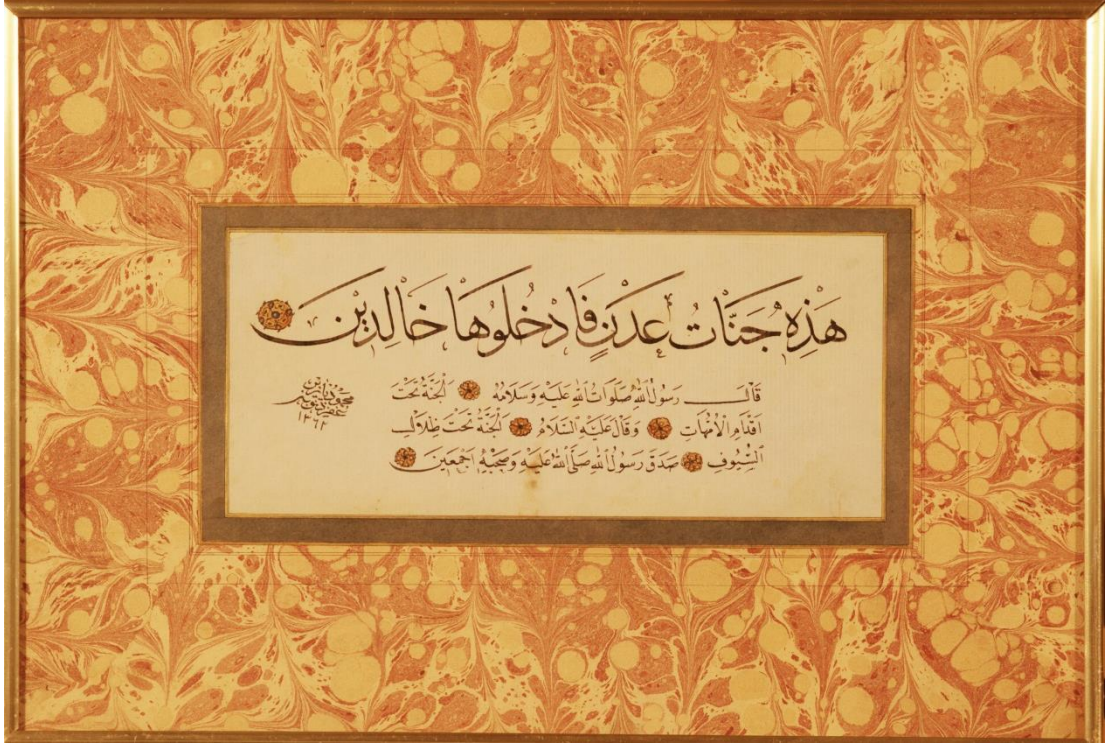 هَذِهِ جَنَّاتُ عَدْنٍ فَادْخُلُوهَا خَالِدِينَ
قَالَ رَسُولُ اللهِ صَلَوَاتُ اللهِ عَلَيْهِ وَسَلَامُهُ اَلْجَنَّةُ تَحْتَ
اَقْدَامِ الْاُمَّهَاتِ وَقَالَ عَلَيْهِ السَّلَامُ اَلْجَنَّةُ تَحْتَ ظِلَالِ
السُّيُوفِ صَدَقَ رَسُولُ اللهِ صَلَّى اللهُ عَلَيْهِ وَصَحْبِهِ اَجْمَعِينَ
محمود
١٣٦٢